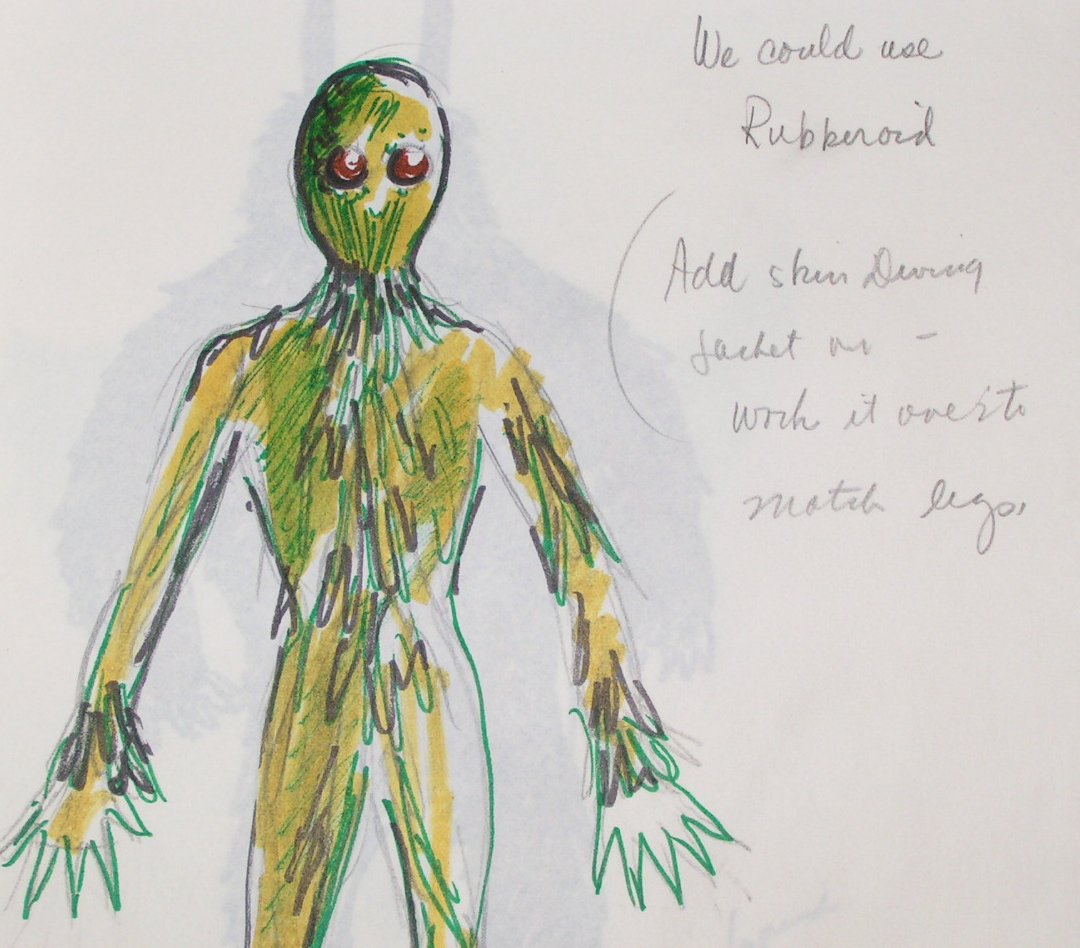 We could use
Rubberoid
Add skin Diving
jacket on –
work it over to
match legs.